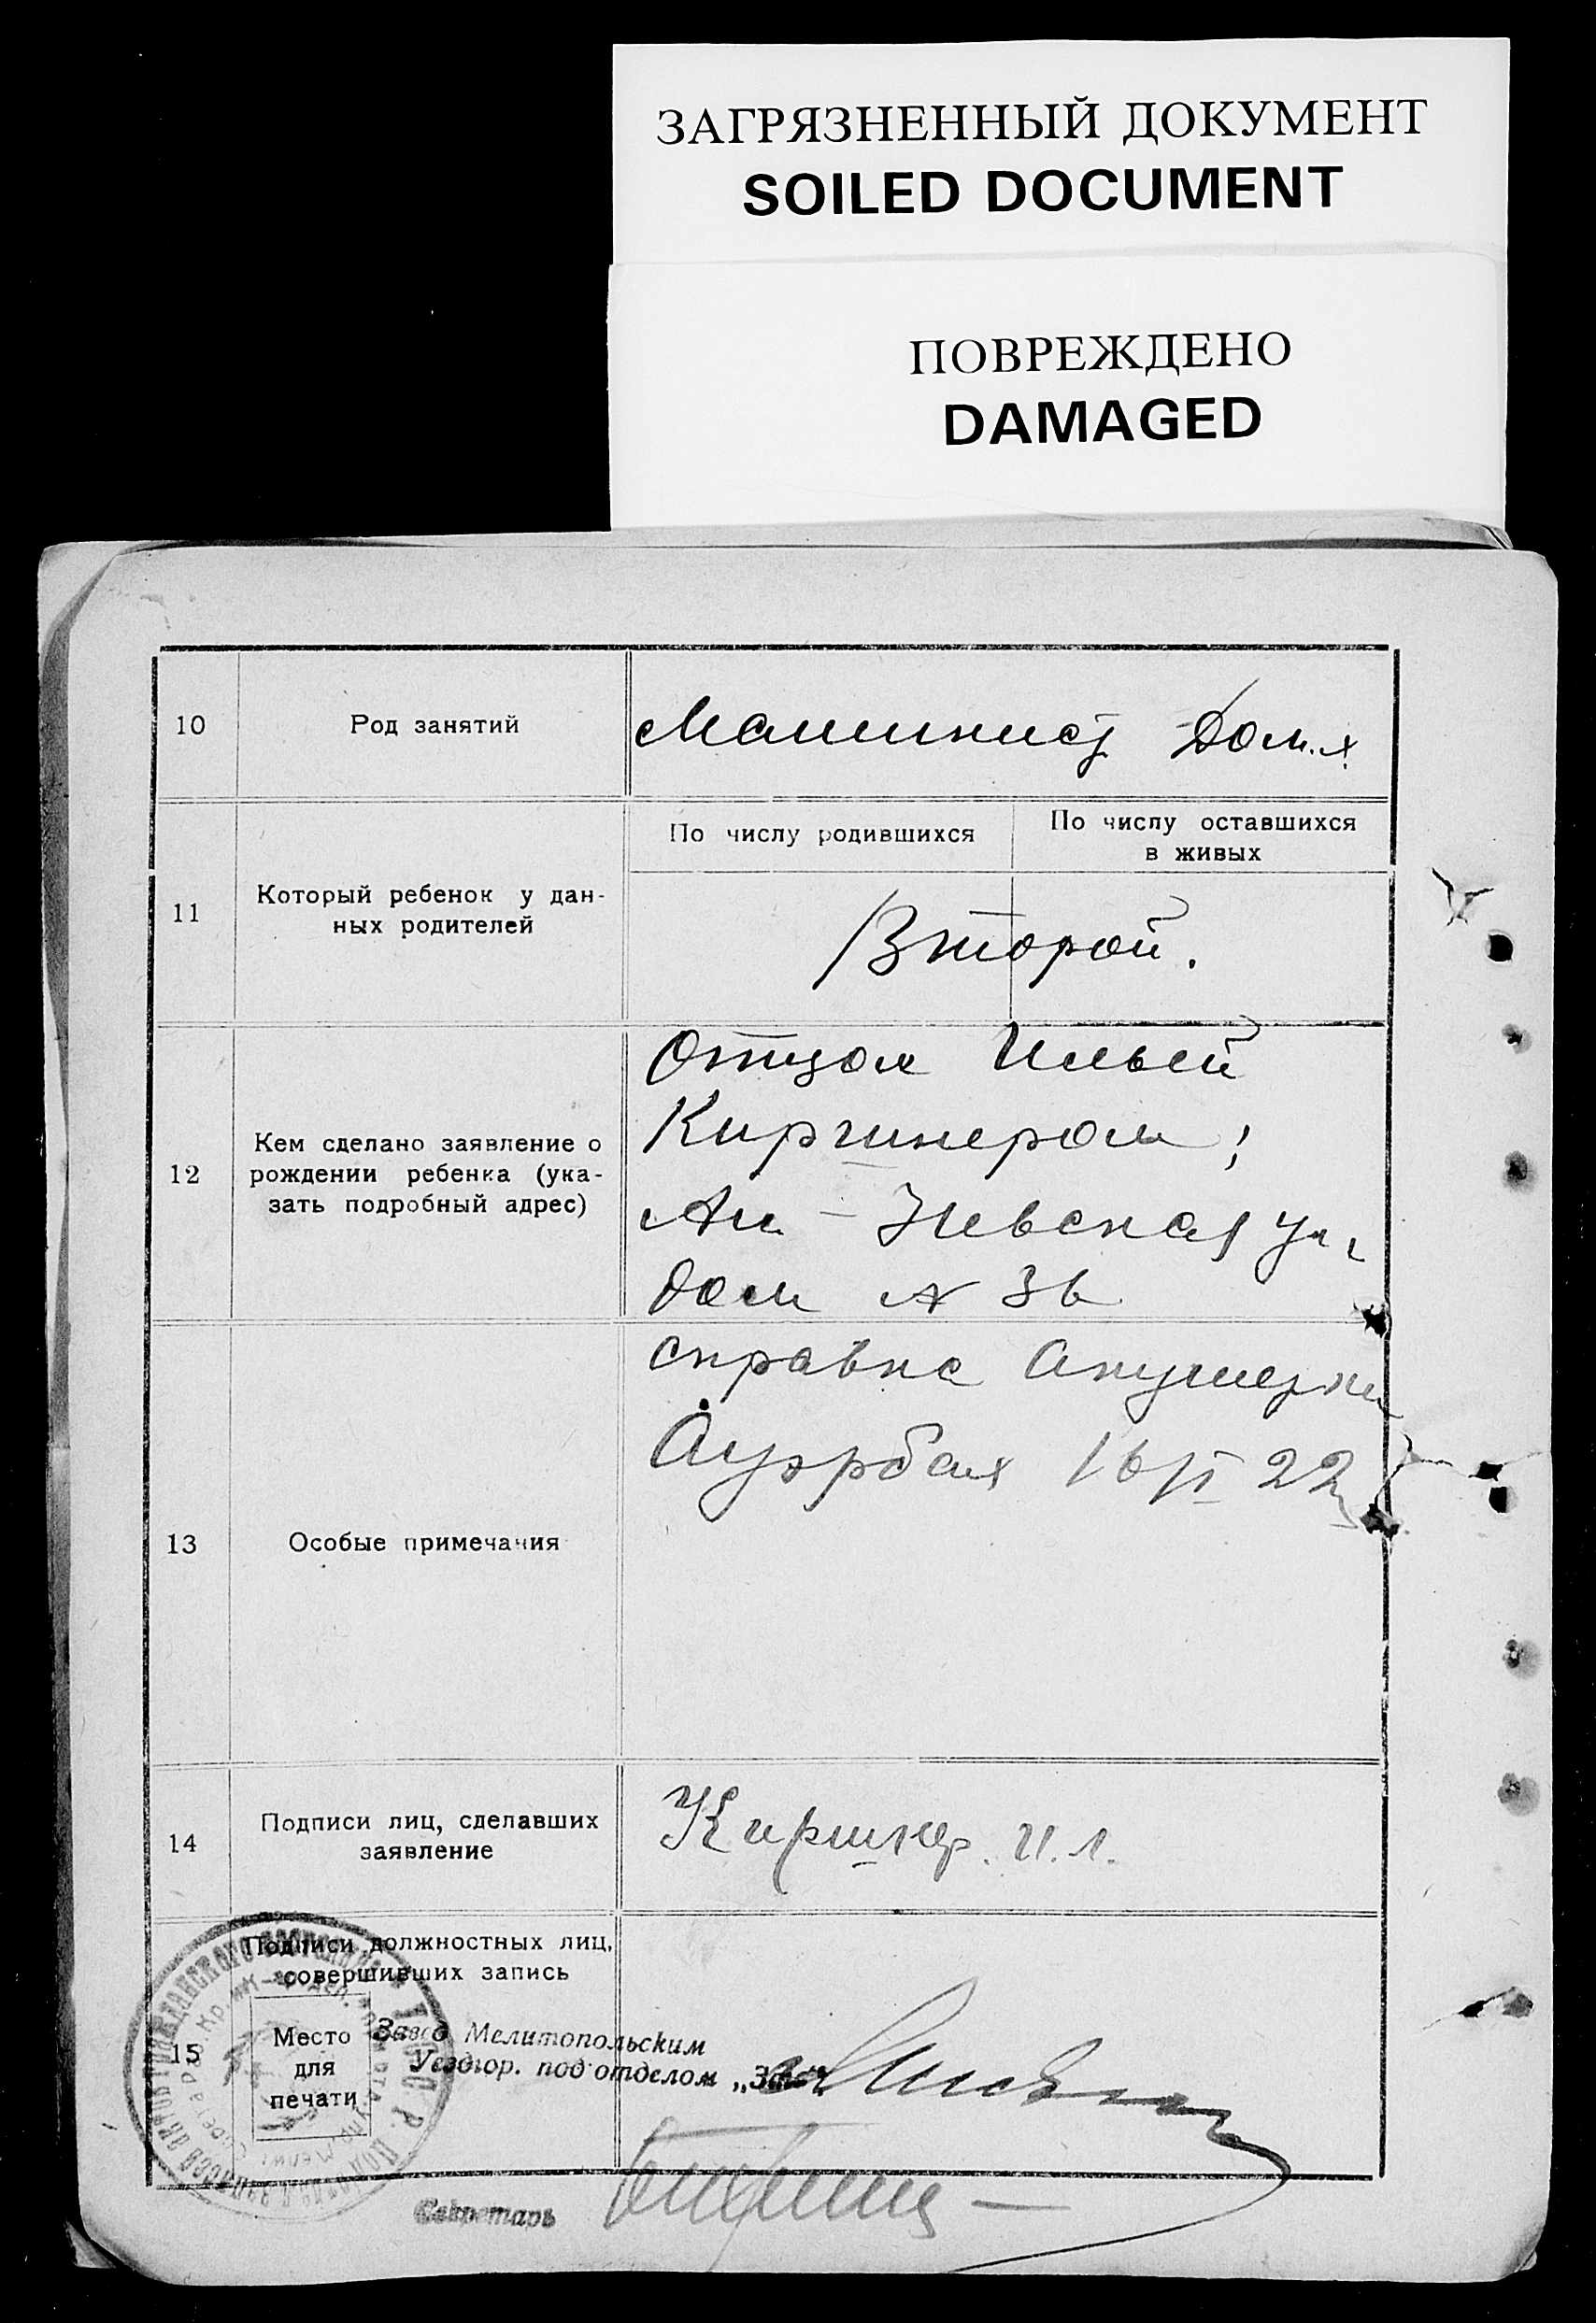 ЗАГРЯЗНЕННЫЙ ДОКУМЕНТ
SOILED DOCUMENT
ПОВРЕЖДЕНО
DAMAGED
10
Род занятий
Машинист Дом.х.
11
Который ребенок у дан-
ных родителей
По числу родившихся
По числу оставшихся
в живых
Второй.
12
Кем сделано заявление о
рождении ребенка (ука-
зать подробный адрес)
Отцом Ильей
Киршнером;
Ал - Невская ул,
дом N 36
13
Особые примечания
справка Акушерки
Ауэрбах 16/II 22
14
Подписи лиц, сделавших
заявление
Киршнер. И.Л.
15
Подписи должностных лиц,
совершивших запись
Место
для
печати
Завед Мелитопольским
Уездгор. подотделом
Секретарь